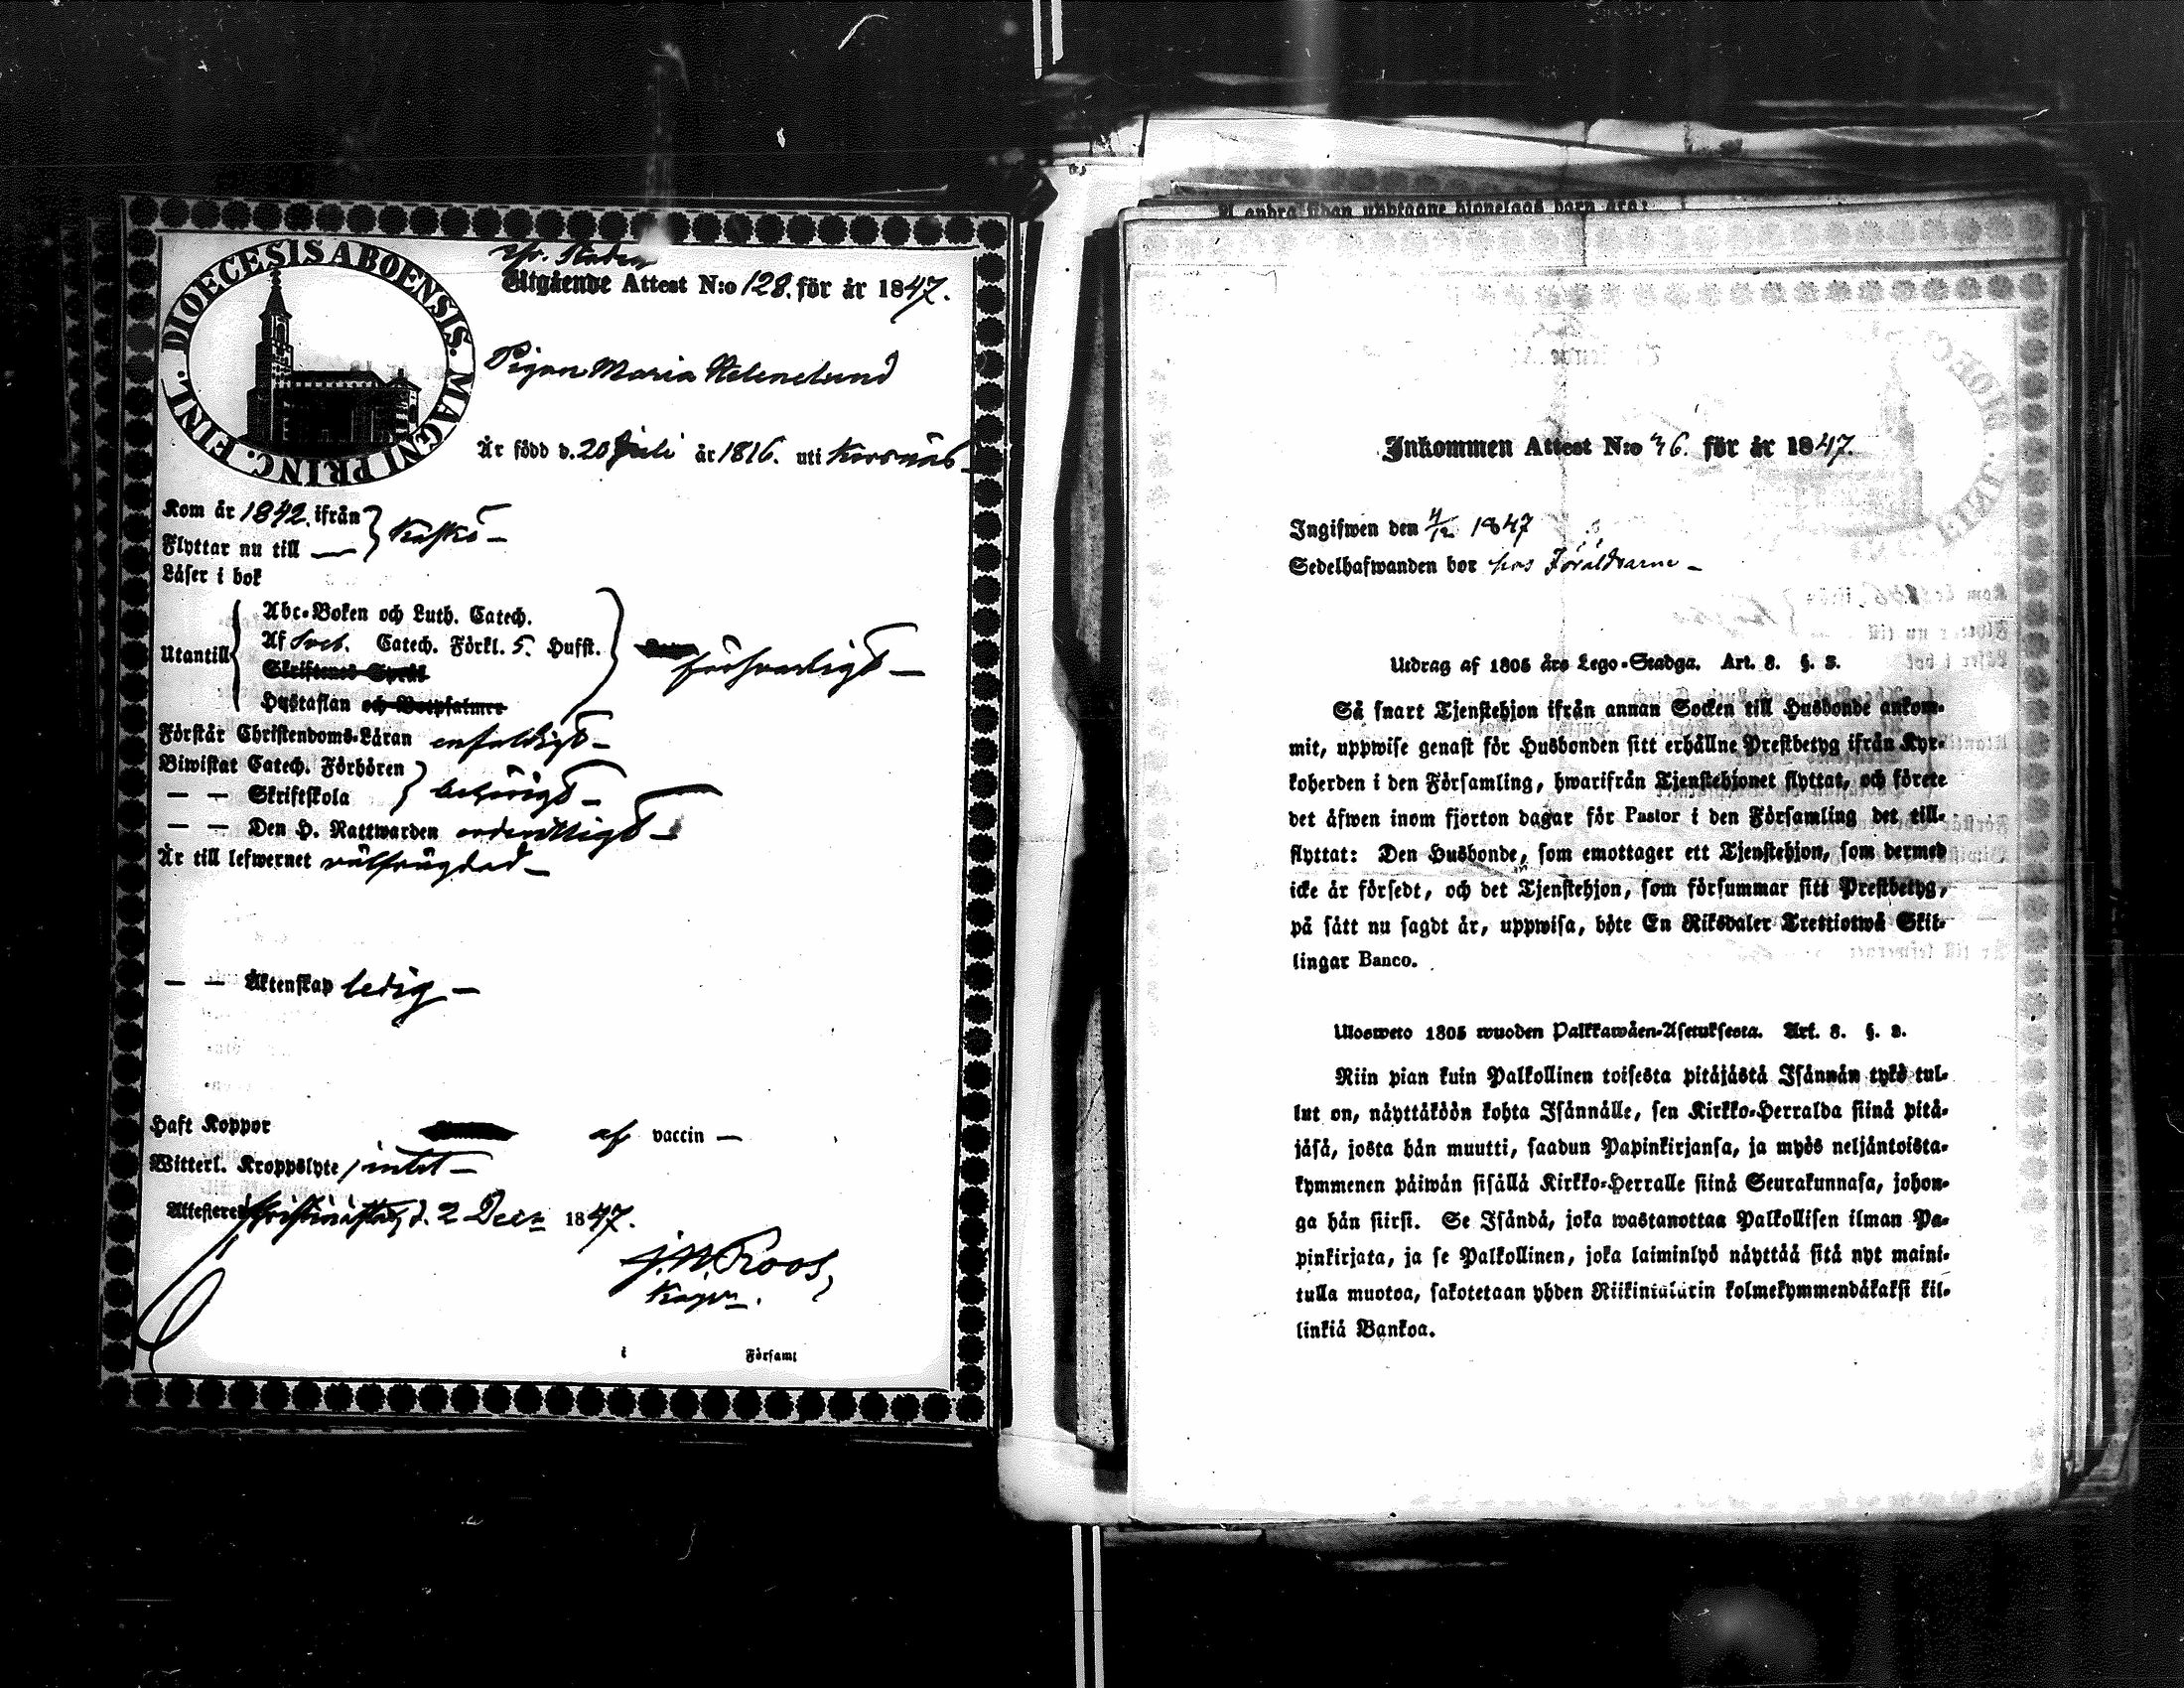 DIOECESIS ABOENSIS. MAGNI PRINC. FINL.
Utgående Attest N:o 128. för år 1847.
Pigan Maria Helenelund
Är född d. 20 Juli år 1816. uti Korsnäs
Kom år 1842. ifrån } Kaskö –
Flyttar nu till —
Läser i bok
Utantill
Abc-Boken och Luth. Catech.
Af Sveb. Catech. Förkl. 5. Hufst.
Skriftenes Språk
Hustaflan och Botpsalmer
försvarligt –
Förstår Christendoms-Läran enfaldigt –
Biwistat Catech. Förhören
— — Skriftskola } behörigt –
— — Den H. Nattwarden ordentligt –
Är till lefwernet välfrägdad –
— — Äktenskap ledig –
Haft Koppor af vaccin —
Witterl. Kroppslyte intet –
Attesterar Christinæstad d. 2 Decr 1847.
J. W. Roos,
i Församl
Inkommen Attest N:o 36. för år 1847.
Ingifwen den 4/12 1847
Sedelhafwanden bor hos Föräldrarne –
Utdrag af 1805 års Lego-Stadga. Art. 3. §. 3.
Så snart Tjenstehjon ifrån annan Socken till Husbonde ankom-
mit, uppwise genast för Husbonden sitt erhållne Prestbetyg ifrån Kyr-
koherden i den Församling, hwarifrån Tjenstehjonet flyttat, och förete
det äfwen inom fjorton dagar för Pastor i den Församling det till-
flyttat: Den Husbonde, som emottager ett Tjenstehjon, som dermed
icke är försedt, och det Tjenstehjon, som försummar sitt Prestbetyg,
på sätt nu sagdt är, uppwisa, böte En Riksdaler Trettiotwå Skil-
lingar Banco.
Ulosweto 1805 wuoden Palkkawäen-Asetuksesta. Art. 3. §. 3.
Niin pian kuin Palkollinen toisesta pitäjästä Isännän tykö tul-
lut on, näyttäköön kohta Isännälle, sen Kirkko-Herralda siinä pitä-
jäsä, josta hän muutti, saadun Papinkirjansa, ja myös neljäntoista-
kymmenen päiwän sisällä Kirkko-Herralle siinä Seurakunnasa, johon-
ga hän siirsi. Se Isändä, joka wastanottaa Palkollisen ilman Pa-
pinkirjata, ja se Palkollinen, joka laiminlyö näyttää sitä nyt maini-
tulla muotoa, sakotetaan yhden Riikintalarin kolmekymmendäkaksi kil-
linkiä Bankoa.